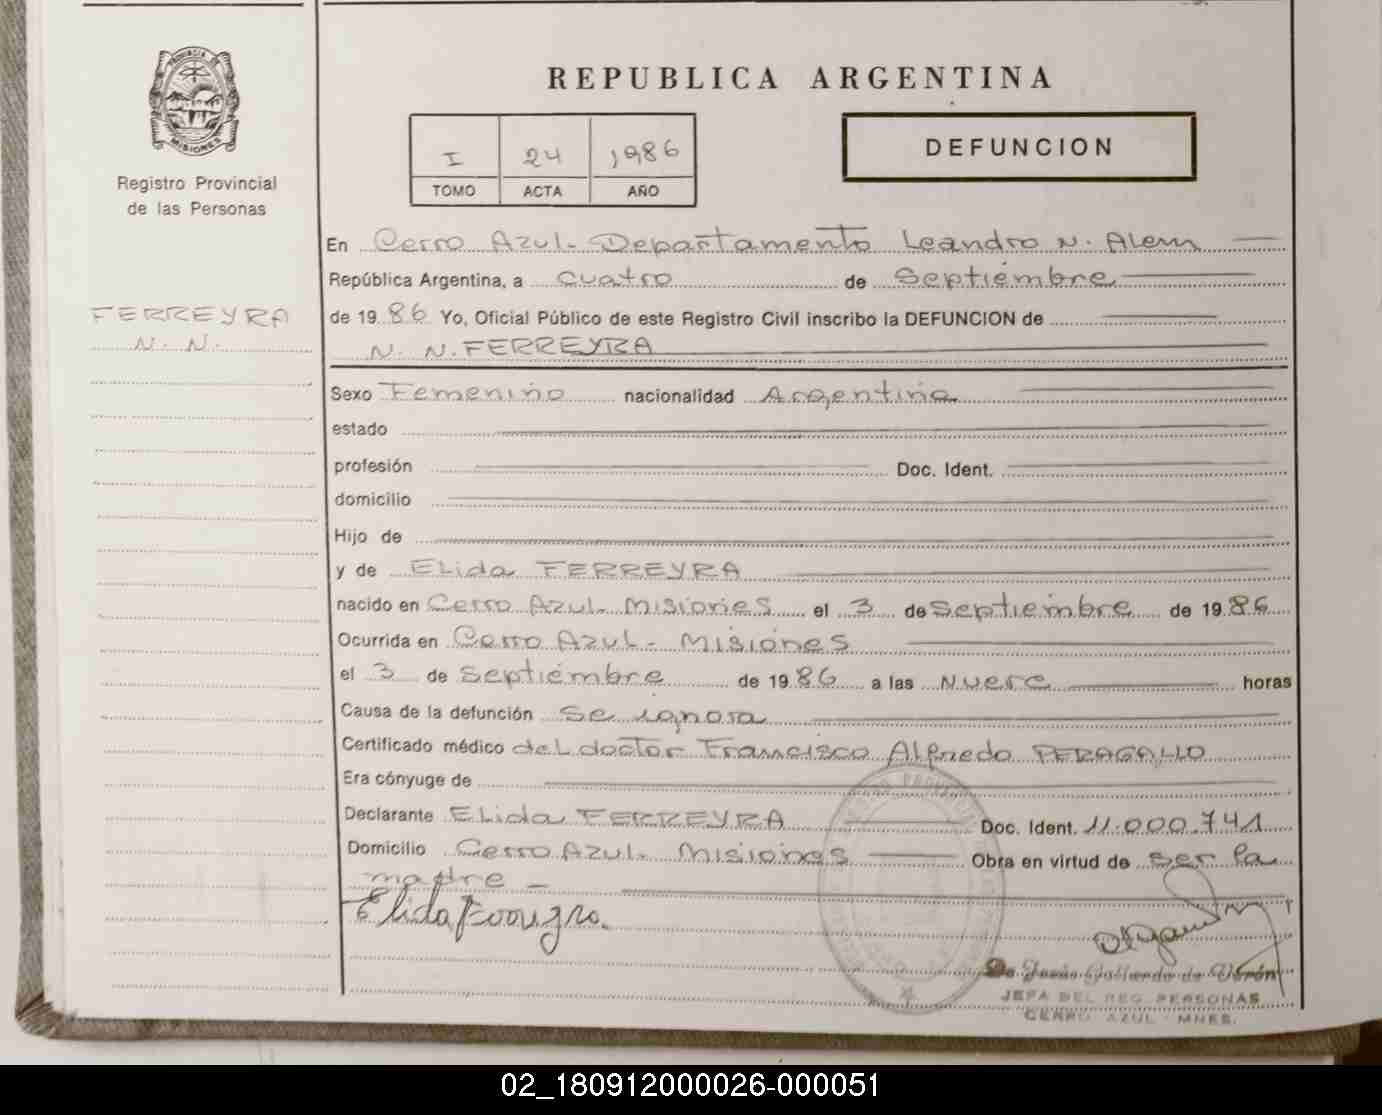 PROVINCIA DE
MISIONES
Registro Provincial
de las Personas
FERREYRA
N. N.
REPUBLICA ARGENTINA
I 24 1986
TOMO ACTA AÑO
DEFUNCION
En Cerro Azul- Departamento Leandro N. Alem
República Argentina, a cuatro de septiembre
de 19 86 Yo, Oficial Público de este Registro Civil inscribo la DEFUNCION de
N. N. FERREYRA
Sexo Femenino nacionalidad Argentina
estado
profesión Doc. Ident.
domicilio
Hijo de
y de Elida FERREYRA
nacido en Cerro Azul- Misiones el 3 de septiembre de 19 86
Ocurrida en Cerro Azul- Misiones
el 3 de septiembre de 19 86 a las nueve horas
Causa de la defunción se ignora
Certificado médico del doctor Francisco Alfredo PERAGALLO
Era cónyuge de
Declarante Elida FERREYRA Doc. Ident. 11.000.741
Domicilio Cerro Azul- Misiones Obra en virtud de ser la
madre -
Elida
JEFA DEL REG. PERSONAS
CERRO AZUL - MNES.
02_180912000026-000051